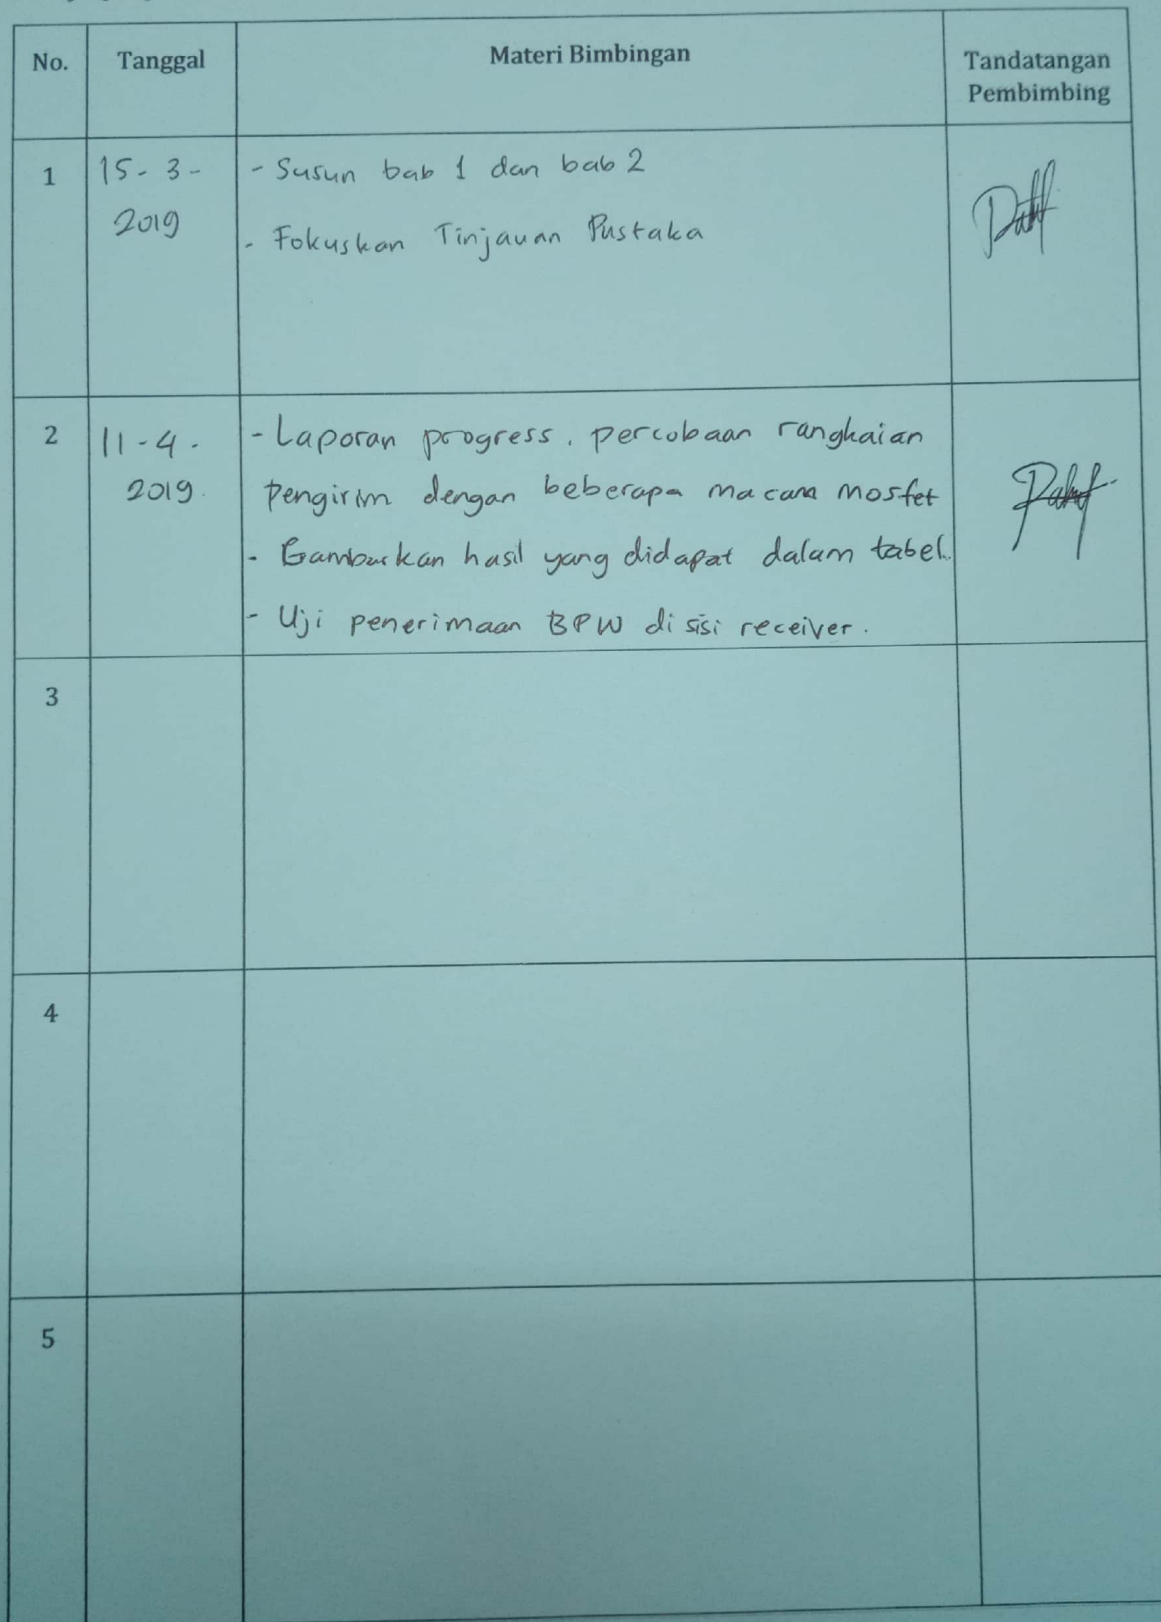 No. Tanggal Materi Bimbingan Tandatangan
Pembimbing
1 15-3- - Susun bab 1 dan bab 2
2019
- Fokuskan Tinjauan Pustaka
2 11-4- - Laporan progress. percobaan rangkaian
2019. pengirim dengan beberapa macam mosfet
- Gambarkan hasil yang didapat dalam tabel.
- Uji penerimaan BPW di sisi receiver.
3
4
5